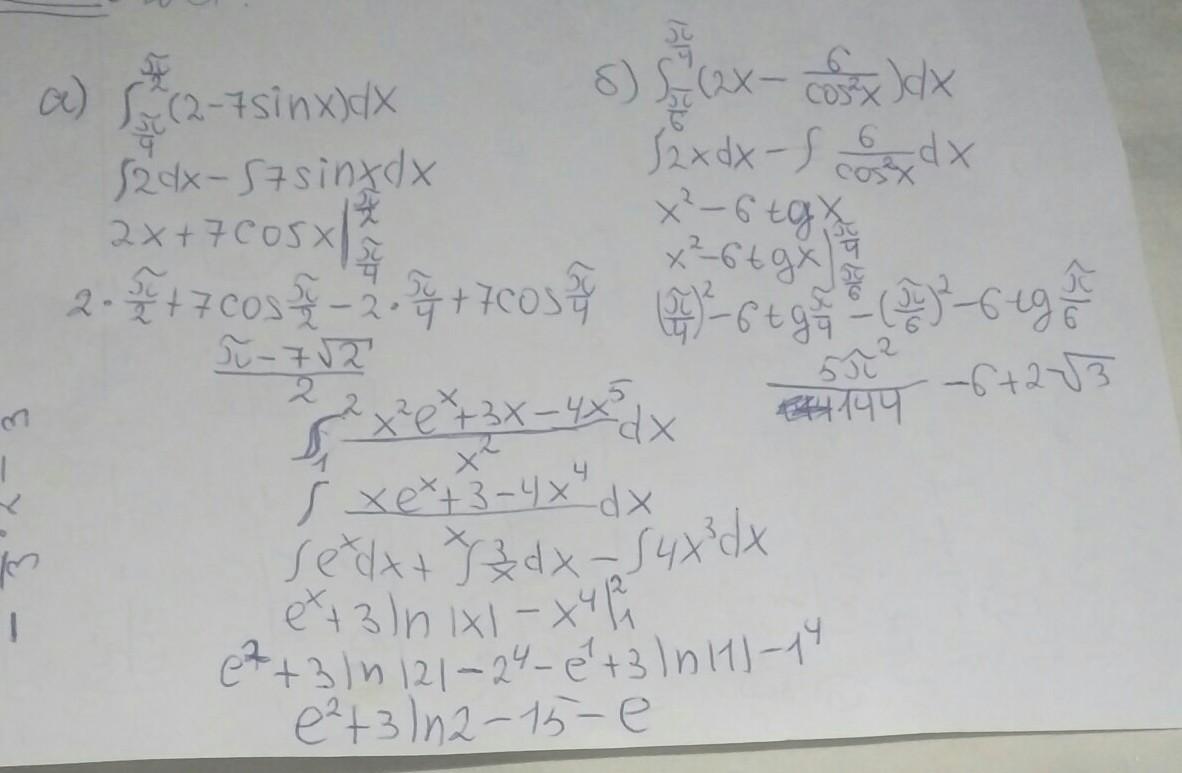 а) ∫_{π/4}^{π/2} (2-7sinx)dx
∫2dx-∫7sinxdx
2x+7cosx|_{π/4}^{π/2}
2·π/2+7cosπ/2-2·π/4+7cosπ/4
(π-7√2)/2
б) ∫_{π/6}^{π/4} (2x-6/cos²x)dx
∫2xdx-∫6/cos²x dx
x²-6tgx
x²-6tgx|_{π/6}^{π/4}
(π/4)²-6tgπ/4-(π/6)²-6tgπ/6
5π²/144 -6+2√3
∫_1^2 (x²eˣ+3x-4x⁵)/x² dx
∫ (xeˣ+3-4x⁴)/x dx
∫eˣdx+∫3/x dx-∫4x³dx
eˣ+3ln|x|-x⁴|_1^2
e²+3ln|2|-2⁴-e¹+3ln|1|-1⁴
e²+3ln2-15-e